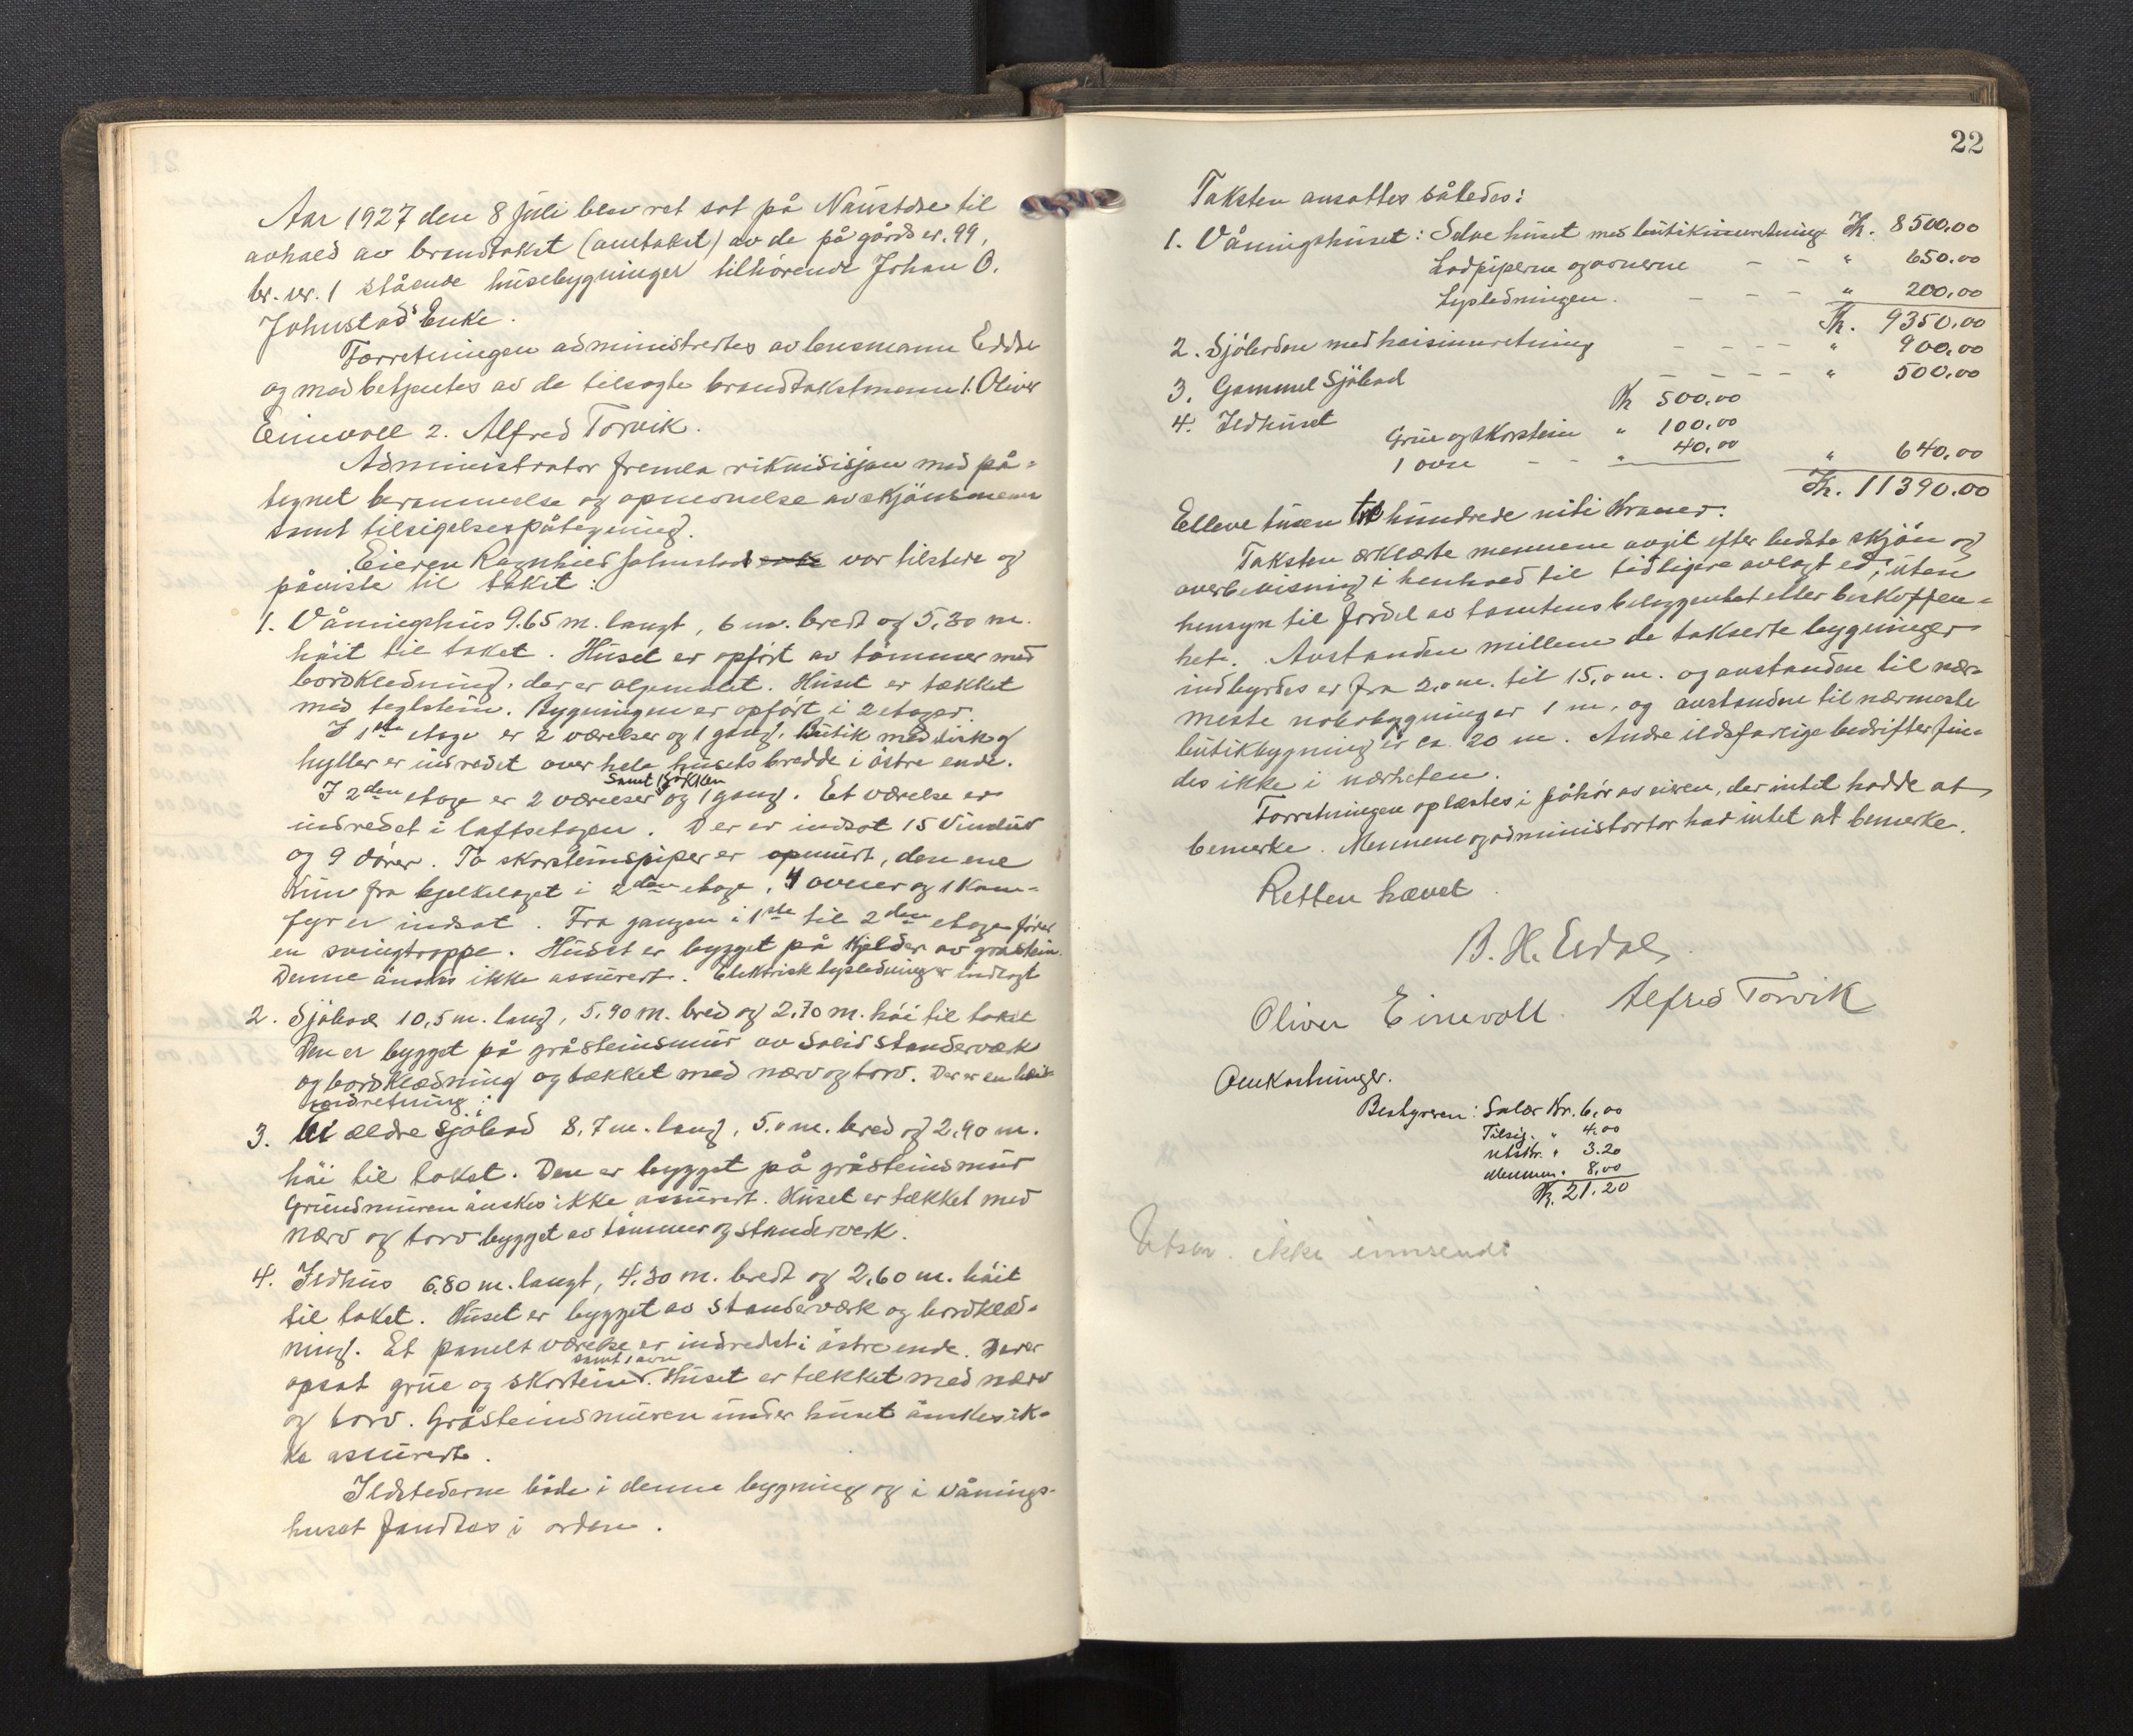 Aar 1927 den 8 Juli blev ret sat på Naustdse til
avhold av brandtakst (omtakst) av de på gårds nr. 99,
br. nr. 1 stående husebygninger tilhörende Johan O.
Johnstad's Enke.
Forretningen administrertes av lensmann Erdal
og medbetjentes av de tilsagte brandtakstmenn 1. Oliver
Einevoll 2. Alfred Torvik.
Administrator fremla rikvisisjon med på=
tegnet berammelse og opnevnelse av skjönsmenn
samt tilsigelsespåtegning.
Eieren Ragnhild Johnstad enke var tilstede og
påviste til takst:
1. Våningshus 9.65 m. langt, 6 m. bredt og 5.30 m.
höit til taket. Huset er opfört av tömmer med
bordkledning, der er oljemalet. Huset er tækket
med teglstein. Bygningen er opfört i 2 etager.
I 1ste etage er 2 værelser og 1 gang. Butik med disk og
hyller er indredet over hele husets bredde i östre ende.
samt kjökken
I 2den etage er 2 værelser og 1 gang. Et værelse er
indredet i loftsetagen. Der er indsat 15 vinduer
og 9 dörer. To skorsteinspiper er opmurt, den ene
kun fra bjelkelaget i 2den etage. 4 ovner og 1 Kom=
fyr er indsat. Fra gangen i 1ste til 2den etage förer
en svingtrappe. Huset er bygget på kjelder av gråstein.
Denne önskes ikke assurert. Elektrisk lysledning er indlagt
2. Sjöbod 10,5 m. lang, 5,90 m. bred og 2,70 m. höi til taket
Den er bygget på gråsteinsmur av solid standerværk
og bordklædning og tækket med næver og torv. Der er en heis-
indretning.
3. En ældre sjöbod 8,7 m. lang, 5,0 m. bred og 2,90 m.
höi til taket. Den er bygget på gråsteinsmur
Grundmuren önskes ikke assurert. Huset er tækket med
næver og torv bygget av tömmer og standerverk.
4. Ildhus 6,80 m. langt, 4,30 m. bredt og 2,60 m. höit
til taket. Huset er bygget av standerværk og bordklæd=
ning. Et panelt værelse er indredet i östre ende. Der er
samt 1 ovn
opsat grue og skorstein. Huset er tækket med næver
og torv. Gråsteinsmuren under huset önskes ik=
ke assurert.
Ildstederne både i denne bygning og i vånings-
huset fandtes i orden.
22
Taksten ansattes således:
1. Våningshuset: Selve huset med butikinnretning Kr. 8500,00
Lodpiperne og ovnerne - - " 650.00
Lysledningen. - - - " 200,00
Kr. 9350.00
2. Sjöboden med heisinnretning - - - - " 900.00
3. Gammel Sjöbod - - - - " 500,00
4. Ildhuset Kr 500.00
Grue og skorstein " 100.00
1 ovn - - " 40.00 " 640,00
Kr. 11390.00
Elleve tusen tre hundrede niti kroner.
Taksten erklærte mennene avgit efter bedste skjön og
overbevisning i henhold til tidligere avlagt ed, uten
hensyn til fordel av tomtens beliggenhet eller beskaffen=
het. Avstanden millem de takserte bygninger
indbyrdes er fra 2,0 m. til 15,0 m. og avstanden til nær-
meste nabobygninger 1 m, og avstanden til nærmeste
butikbygning er ca 20 m. Andre ildsfarlige bedrifter fin=
des ikke i nærheten.
Forretningen oplæstes i påhör av eieren, der intet hadde at
bemerke. Mennene og administrator had intet at bemerke.
Retten hævet
B. H. Erdal
Oliver Einevoll. Alfred Torvik
Omkostninger.
Bestyreren: Salær Kr. 6,00
Tilsig. " 4,00
Utskr. " 3.20
Mennene " 8,00
Kr. 21,20
Utskr. ikke innsendt